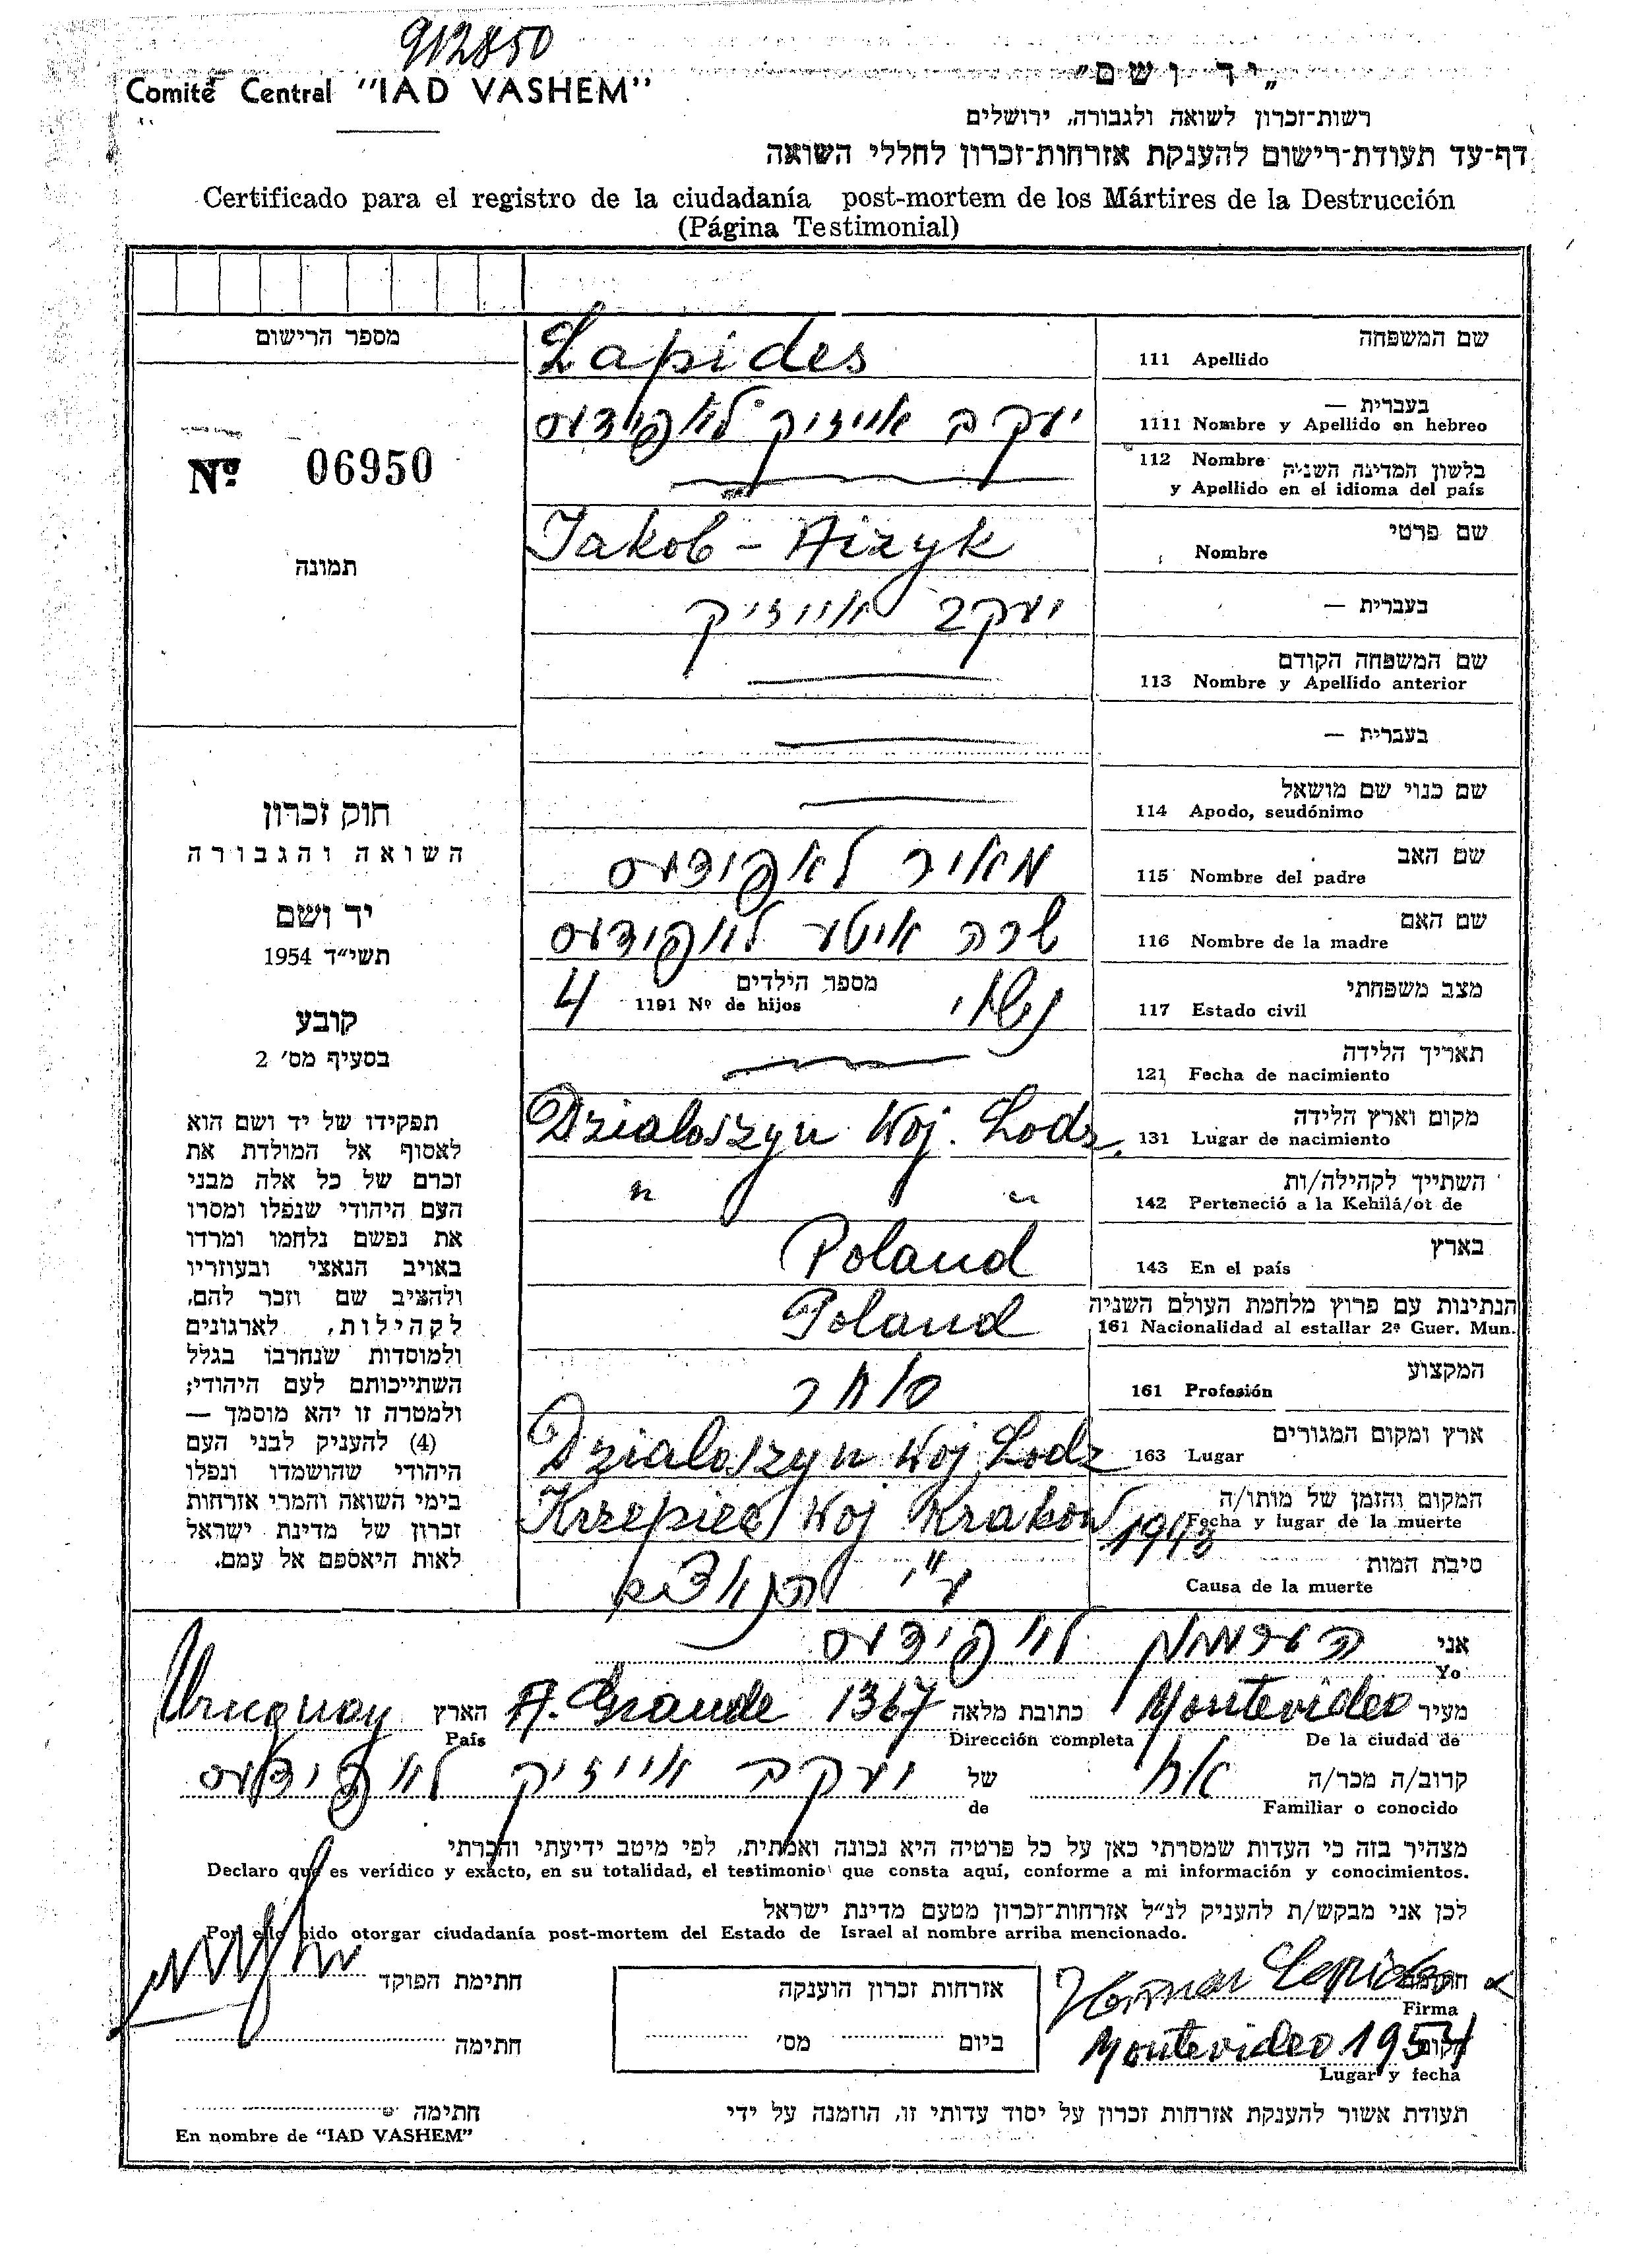 912850
Comité Central "IAD VASHEM"
„יד ושם"
רשות־זכרון לשואה ולגבורה, ירושלים
דף־עד תעודת־רישום להענקת אזרחות־זכרון לחללי השואה
Certificado para el registro de la ciudadanía post-mortem de los Mártires de la Destrucción
(Página Testimonial)
מספר הרישום
Nº 06950
תמונה
חוק זכרון
השואה והגבורה
יד ושם
תשי״ד 1954
קובע
בסעיף מס׳ 2
תפקידו של יד ושם הוא
לאסוף אל המולדת את
זכרם של כל אלה מבני
העם היהודי שנפלו ומסרו
את נפשם נלחמו ומרדו
באויב הנאצי ובעוזריו
ולהציב שם וזכר להם,
לקהילות, לארגונים
ולמוסדות שנחרבו בגלל
השתייכותם לעם היהודי;
ולמטרה זו יהא מוסמך —
(4) להעניק לבני העם
היהודי שהושמדו ונפלו
בימי השואה והמרי אזרחות
זכרון של מדינת ישראל
לאות היאספם אל עמם.
שם המשפחה
111 Apellido Lapides
בעברית —
1111 Nombre y Apellido en hebreo יעקב אייזיק לאפידעס
112 Nombre בלשון המדינה השניה
y Apellido en el idioma del país
שם פרטי
Nombre Jakob - Aizyk
בעברית — יעקב אייזיק
שם המשפחה הקודם
113 Nombre y Apellido anterior
בעברית —
שם כנוי שם מושאל
114 Apodo, seudónimo
שם האב
115 Nombre del padre מאיר לאפידעס
שם האם
116 Nombre de la madre שרה איטע לאפידעס
מצב משפחתי
117 Estado civil נשוי
מספר הילדים
1191 Nº de hijos 4
תאריך הלידה
121 Fecha de nacimiento
מקום וארץ הלידה
131 Lugar de nacimiento Dzialoszyn Woj. Lodz
השתייך לקהילה/ות
142 Perteneció a la Kehilá/ot de " "
בארץ
143 En el país Poland
הנתינות עם פרוץ מלחמת העולם השניה
161 Nacionalidad al estallar 2ª Guer. Mun. Poland
המקצוע
161 Profesión סוחר
ארץ ומקום המגורים
163 Lugar Dzialoszyn Woj Lodz
המקום והזמן של מותו/ה
Fecha y lugar de la muerte Krzepice Woj Krakow 1943
סיבת המות
Causa de la muerte ע״י הנאצים
אני הערמאן לאפידעס
Yo
מעיר Montevideo כתובת מלאה A. Grande 1367 הארץ Uruguay
De la ciudad de Dirección completa País
קרוב/ה מכר/ה אח של יעקב אייזיק לאפידעס
Familiar o conocido de
מצהיר בזה כי העדות שמסרתי כאן על כל פרטיה היא נכונה ואמתית, לפי מיטב ידיעתי והכרתי
Declaro que es verídico y exacto, en su totalidad, el testimonio que consta aquí, conforme a mi información y conocimientos.
לכן אני מבקש/ת להעניק לנ״ל אזרחות־זכרון מטעם מדינת ישראל
Por ello pido otorgar ciudadanía post-mortem del Estado de Israel al nombre arriba mencionado.
חתימה
Firma
Montevideo 1954
מקום
Lugar y fecha
אזרחות זכרון הוענקה
ביום מס׳
חתימת הפוקד
חתימה
תעודת אשור להענקת אזרחות זכרון על יסוד עדותי זו, הוזמנה על ידי
חתימה
En nombre de "IAD VASHEM"